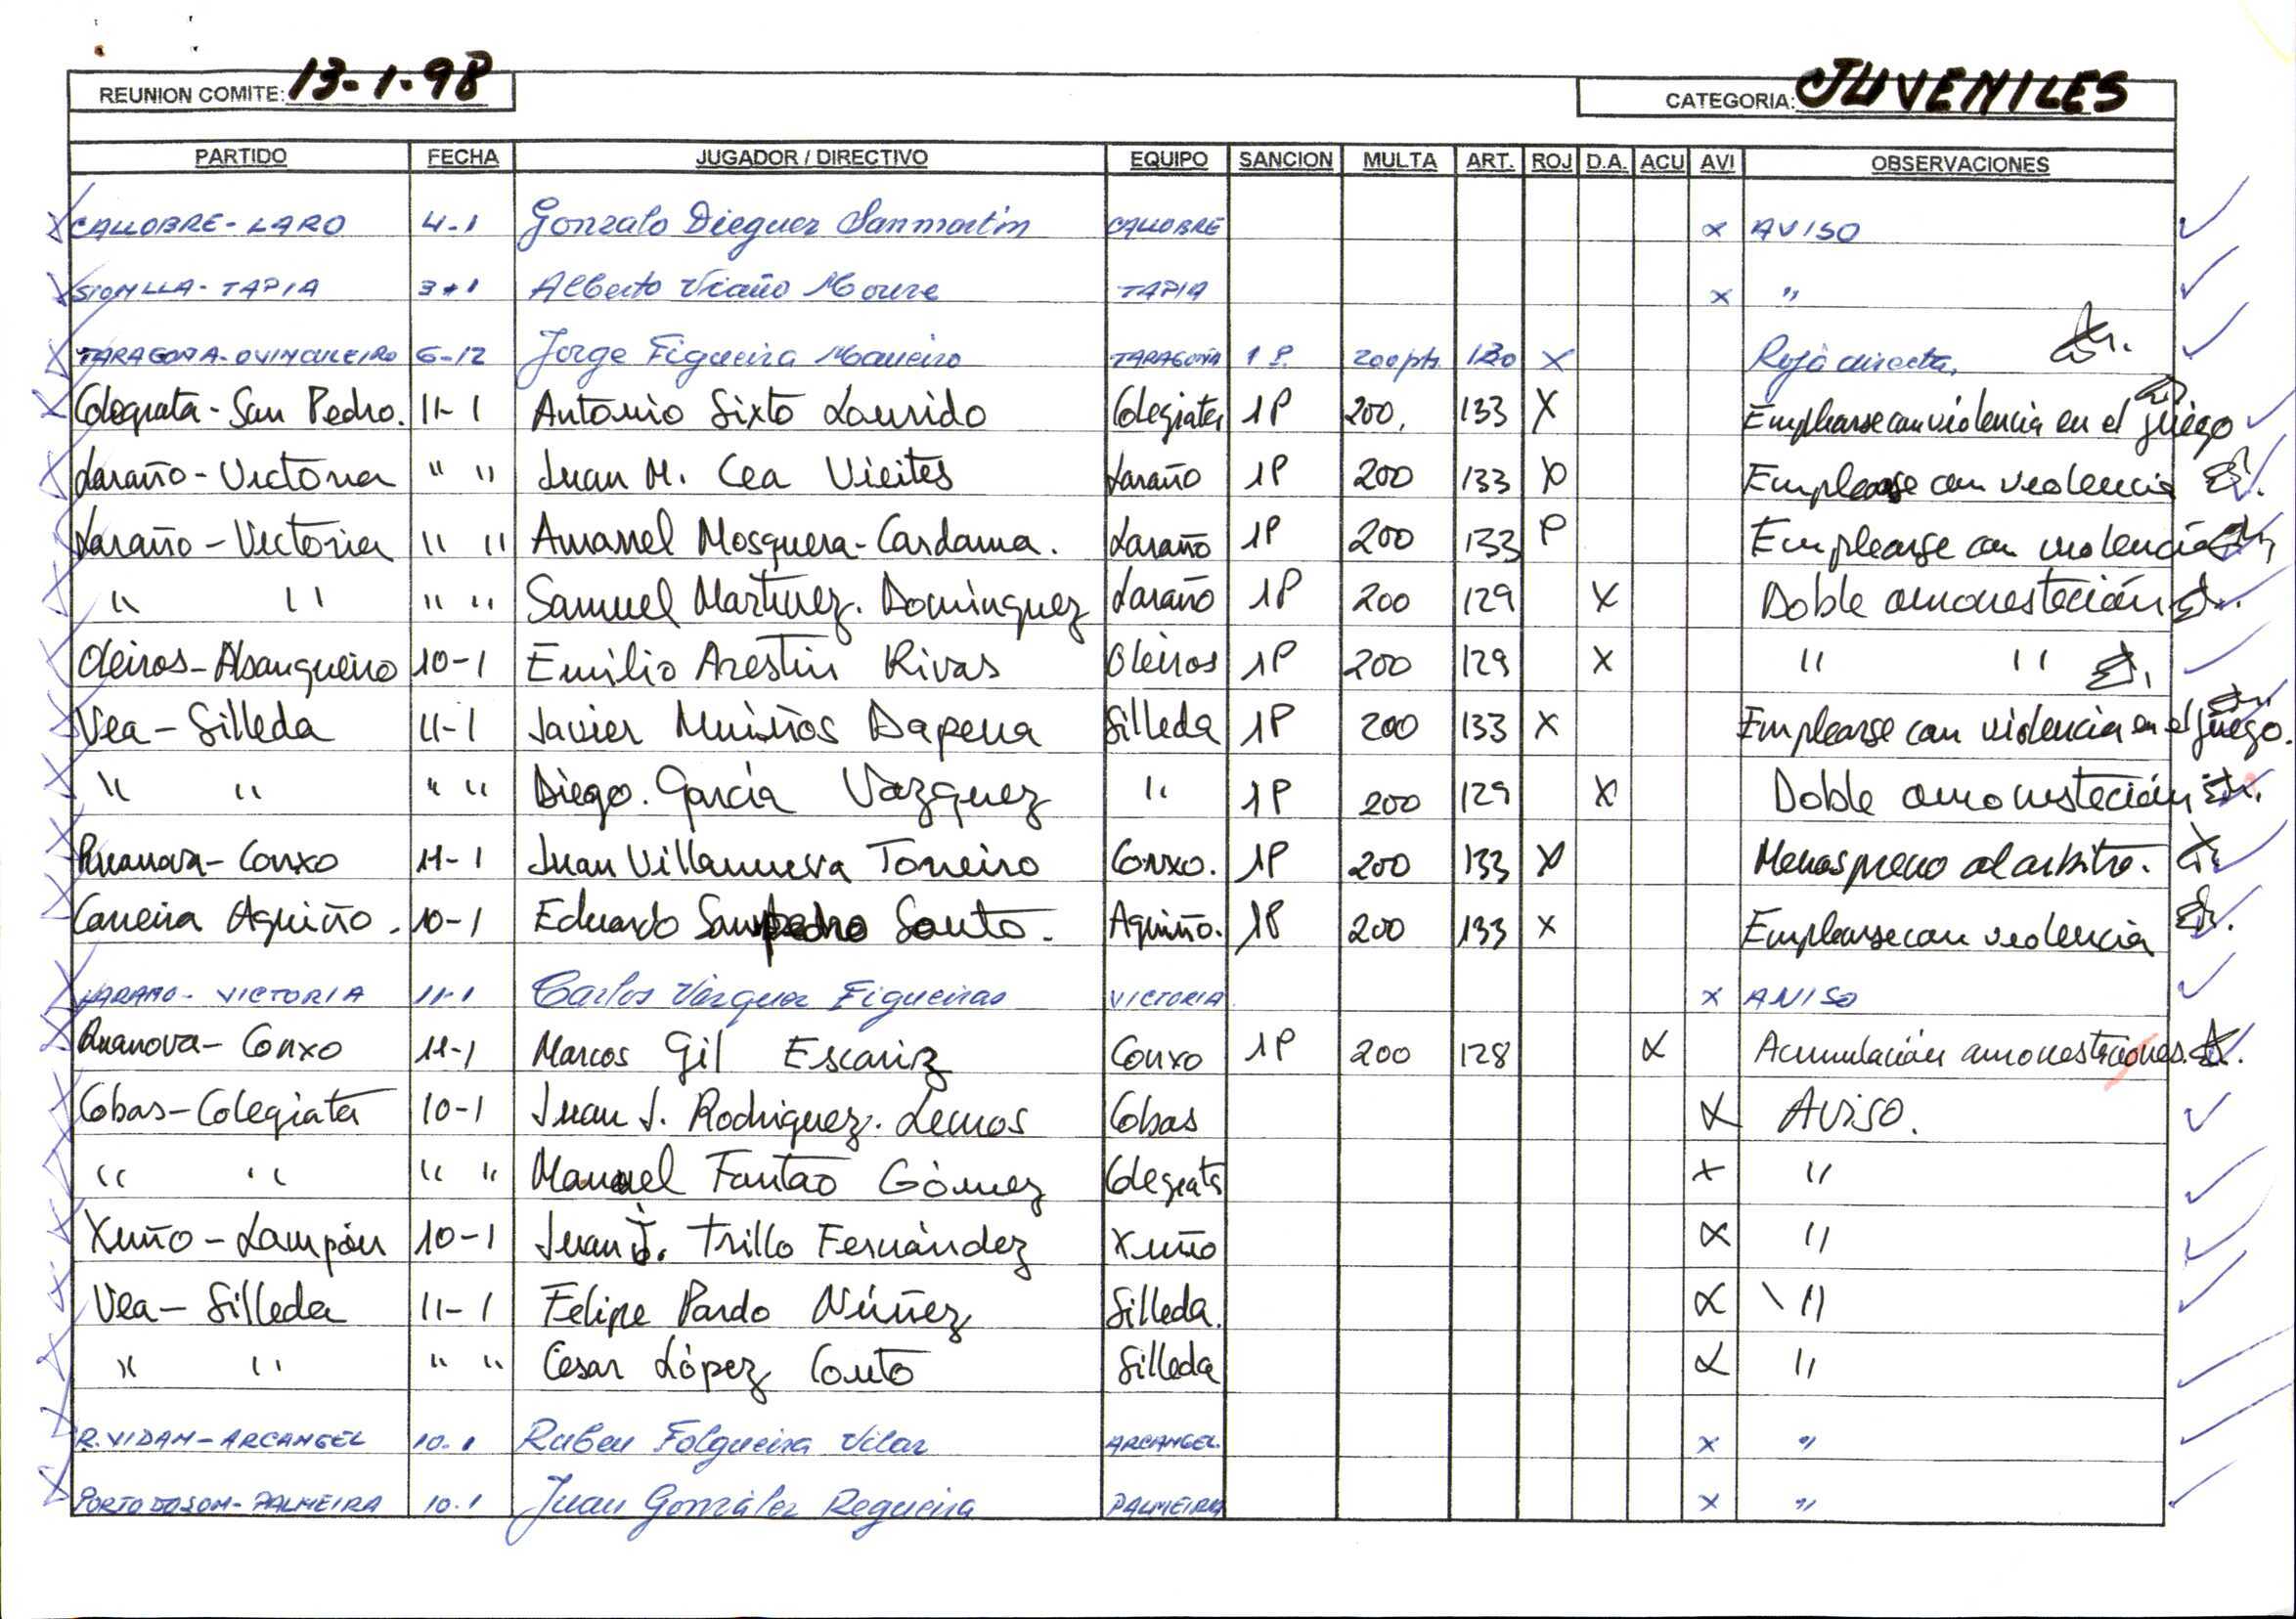 REUNION COMITE: 13-1-98 CATEGORIA: JUVENILES
PARTIDO FECHA JUGADOR / DIRECTIVO EQUIPO SANCION MULTA ART. ROJ D.A. ACU AVI OBSERVACIONES
CALLOBRE - LARO 4-1 Gonzalo Dieguez Sanmartin CALLOBRE x AVISO
SIONLLA - TAPIA 3-1 Alberto Viaño Moure TAPIA x "
TARAGOÑA - OVINCULEIRO 6-12 Jorge Figueira Maneiro TARAGOÑA 1 P. 200 pts 130 X Roja directa.
Colegiata - San Pedro. 11-1 Antonio Sixto Lourido Colegiata 1P 200. 133 X Emplearse con violencia en el juego
Laraño - Victoria " " Juan M. Cea Vieites Laraño 1P 200 133 X Emplearse con violencia
Laraño - Victoria " " Manuel Mosquera - Cardama. Laraño 1P 200 133 P Emplearse con violencia
" " " " Samuel Martinez. Dominguez Laraño 1P 200 129 X Doble amonestación
Oleiros - Abanqueiro 10-1 Emilio Arestin Rivas Oleiros 1P 200 129 X " "
Vea - Silleda 11-1 Javier Muiños Dapena Silleda 1P 200 133 X Emplearse con violencia en el juego.
" " " " Diego. García Vazquez " 1P 200 129 X Doble amonestación
Ruanova - Conxo 11-1 Juan Villanueva Torreiro Conxo. 1P 200 133 X Menosprecio al arbitro.
Carreira Aguiño. 10-1 Eduardo Sampedro Souto. Aguiño. 1P 200 133 X Emplearse con violencia
LARAÑO - VICTORIA 11-1 Carlos Vázquez Figueiras VICTORIA x AVISO
Ruanova - Conxo 11-1 Marcos Gil Escariz Conxo 1P 200 128 X Acumulación amonestaciones.
Cobas - Colegiata 10-1 Juan J. Rodriguez. Lemos Cobas X Aviso.
" " " " Manuel Fantao Gómez Colegiata X "
Xuño - Lampón 10-1 Juan J. Trillo Fernández Xuño X "
Vea - Silleda 11-1 Felipe Pardo Núñez Silleda. X "
" " " " Cesar López Couto Silleda X "
R. VIDAN - ARCANGEL 10-1 Ruben Folgueira Vilar ARCANGEL. x "
PORTO DO SON - PALMEIRA 10-1 Juan González Regueira PALMEIRA x "